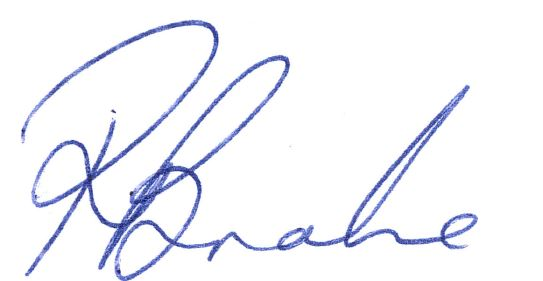 R Brake